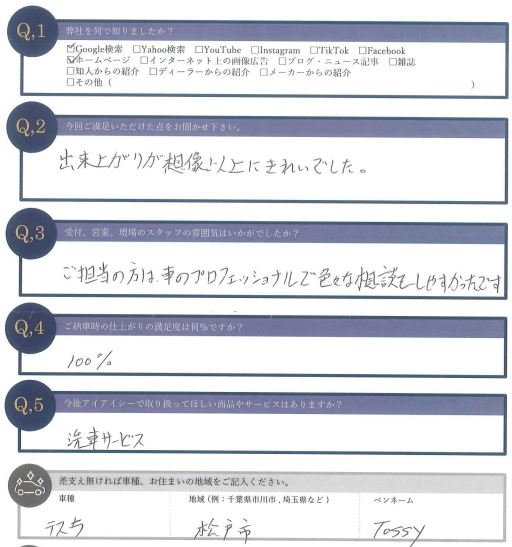 Q,1 弊社を何で知りましたか？
☑Google検索 □Yahoo検索 □YouTube □Instagram □TikTok □Facebook
☑ホームページ □インターネット上の画像広告 □ブログ・ニュース記事 □雑誌
□知人からの紹介 □ディーラーからの紹介 □メーカーからの紹介
□その他（ ）
Q,2 今回ご満足いただけた点をお聞かせ下さい。
出来上がりが想像以上にきれいでした。
Q,3 受付、営業、現場のスタッフの雰囲気はいかがでしたか？
ご担当の方は、車のプロフェッショナルで色々な相談をしやすかったです
Q,4 ご納車時の仕上がりの満足度は何%ですか？
100%
Q,5 今後アイアイシーで取り扱ってほしい商品やサービスはありますか？
洗車サービス
差支え無ければ車種、お住まいの地域をご記入ください。
車種 地域（例：千葉県市川市，埼玉県など） ペンネーム
松戸市 Tossy